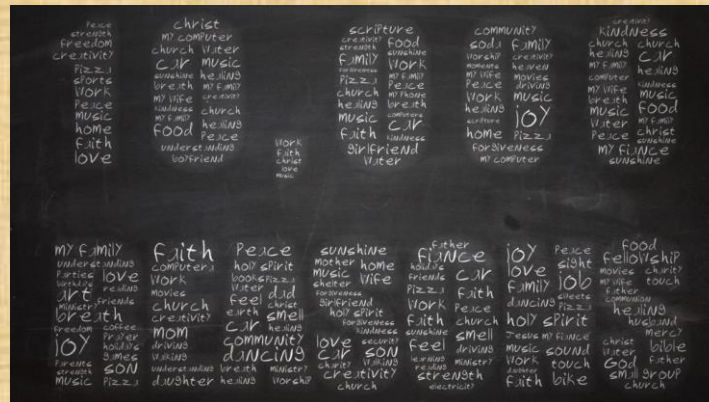 Peace
strength
freedom
creativity
Pizza
sports
Work
Peace
music
home
faith
love
christ
my computer
church Water
car music
sunshine healing
breath my family
my wife creativity
kindness church
my family healing
food Peace
understanding
boyfriend
Work
faith
christ
love
music
scripture
creativity food
strength sunshine
family Work
forgiveness my family
Pizza Peace
church my phone
healing breath
music computers
faith car
kindness
girlfriend
Water
community
soda family
worship creativity
moments heaven
my wife movies
Peace driving
Work music
healing joy
scripture
home Pizza
forgiveness
my computer
creativity
kindness
church church
healing car
my family healing
computer kindness
my wife music
breath food
my family christ
Water sunshine
Peace kindness
my fiance
sunshine
my family
understanding
Parties love
birthdays reading
art friends
ministry
breath
freedom coffee
joy Prayer
holidays
Parents games
strength son
music Pizza
faith
computers
Work
movies
church
creativity
mom
driving
Walking
understanding
daughter
Peace
holy spirit
books Pizza
Water dad
feel smell
earth healing
car
community
dancing
breath ministry
healing Worship
sunshine
mother home
music wife
shelter
forgiveness
girlfriend
holy spirit
forgiveness
kindness
love security
car son
charity Walking
creativity
church
father
fiance
holidays car
friends
Pizza faith
Work Peace
faith church
sunshine smell
feel driving
learning ministry
reading
strength
electricity
joy Peace
love sight
family job
dancing sweets
Pizza
holy spirit
Jesus my fiance
music sound
Work touch
daughter
faith bike
food
fellowship
movies charity
my wife touch
father
communion
healing
husband
mercy
christ bible
Water
God father
small group
church